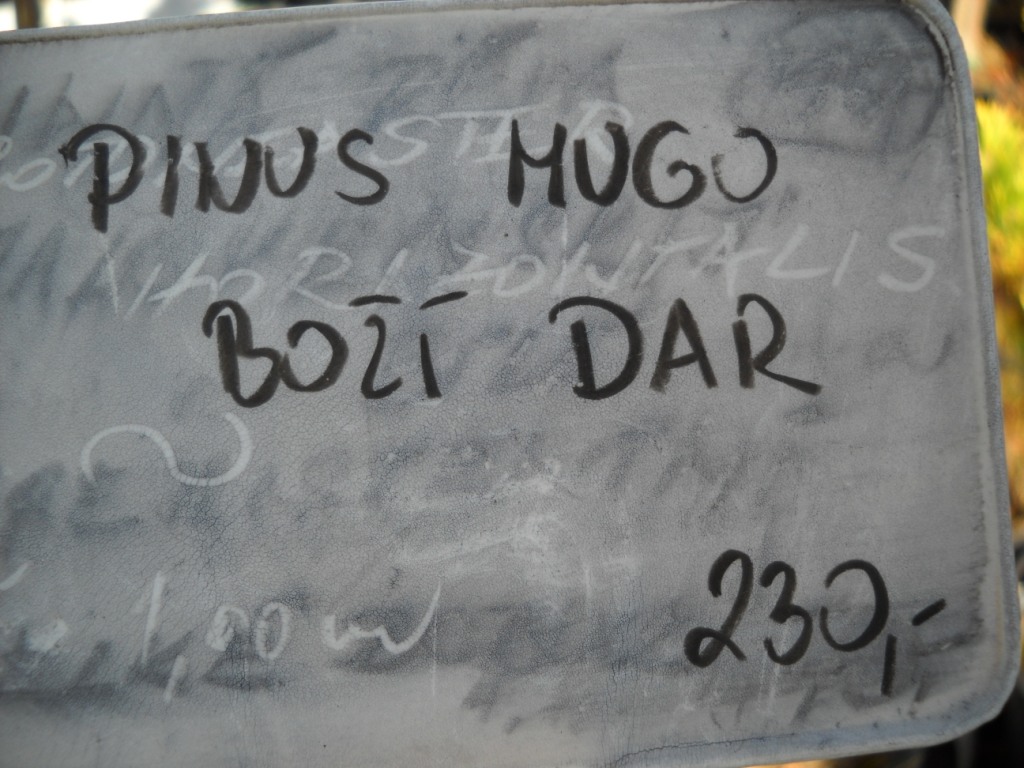 PINUS MUGO
HORIZONTALIS
BOŽÍ DAR
1,00 m
230,-